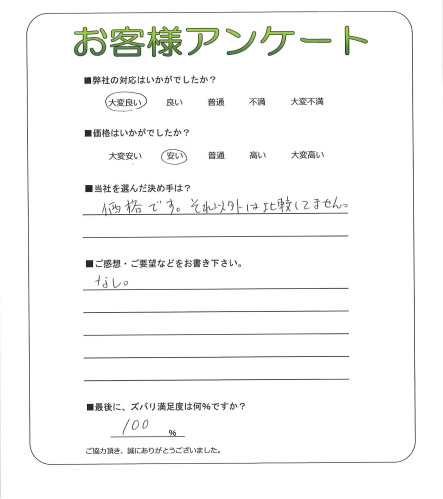 お客様アンケート
■弊社の対応はいかがでしたか？
大変良い 良い 普通 不満 大変不満
■価格はいかがでしたか？
大変安い 安い 普通 高い 大変高い
■当社を選んだ決め手は？
価格です。それ以外は比較してません。
■ご感想・ご要望などをお書き下さい。
なし。
■最後に、ズバリ満足度は何％ですか？
100 ％
ご協力頂き、誠にありがとうございました。